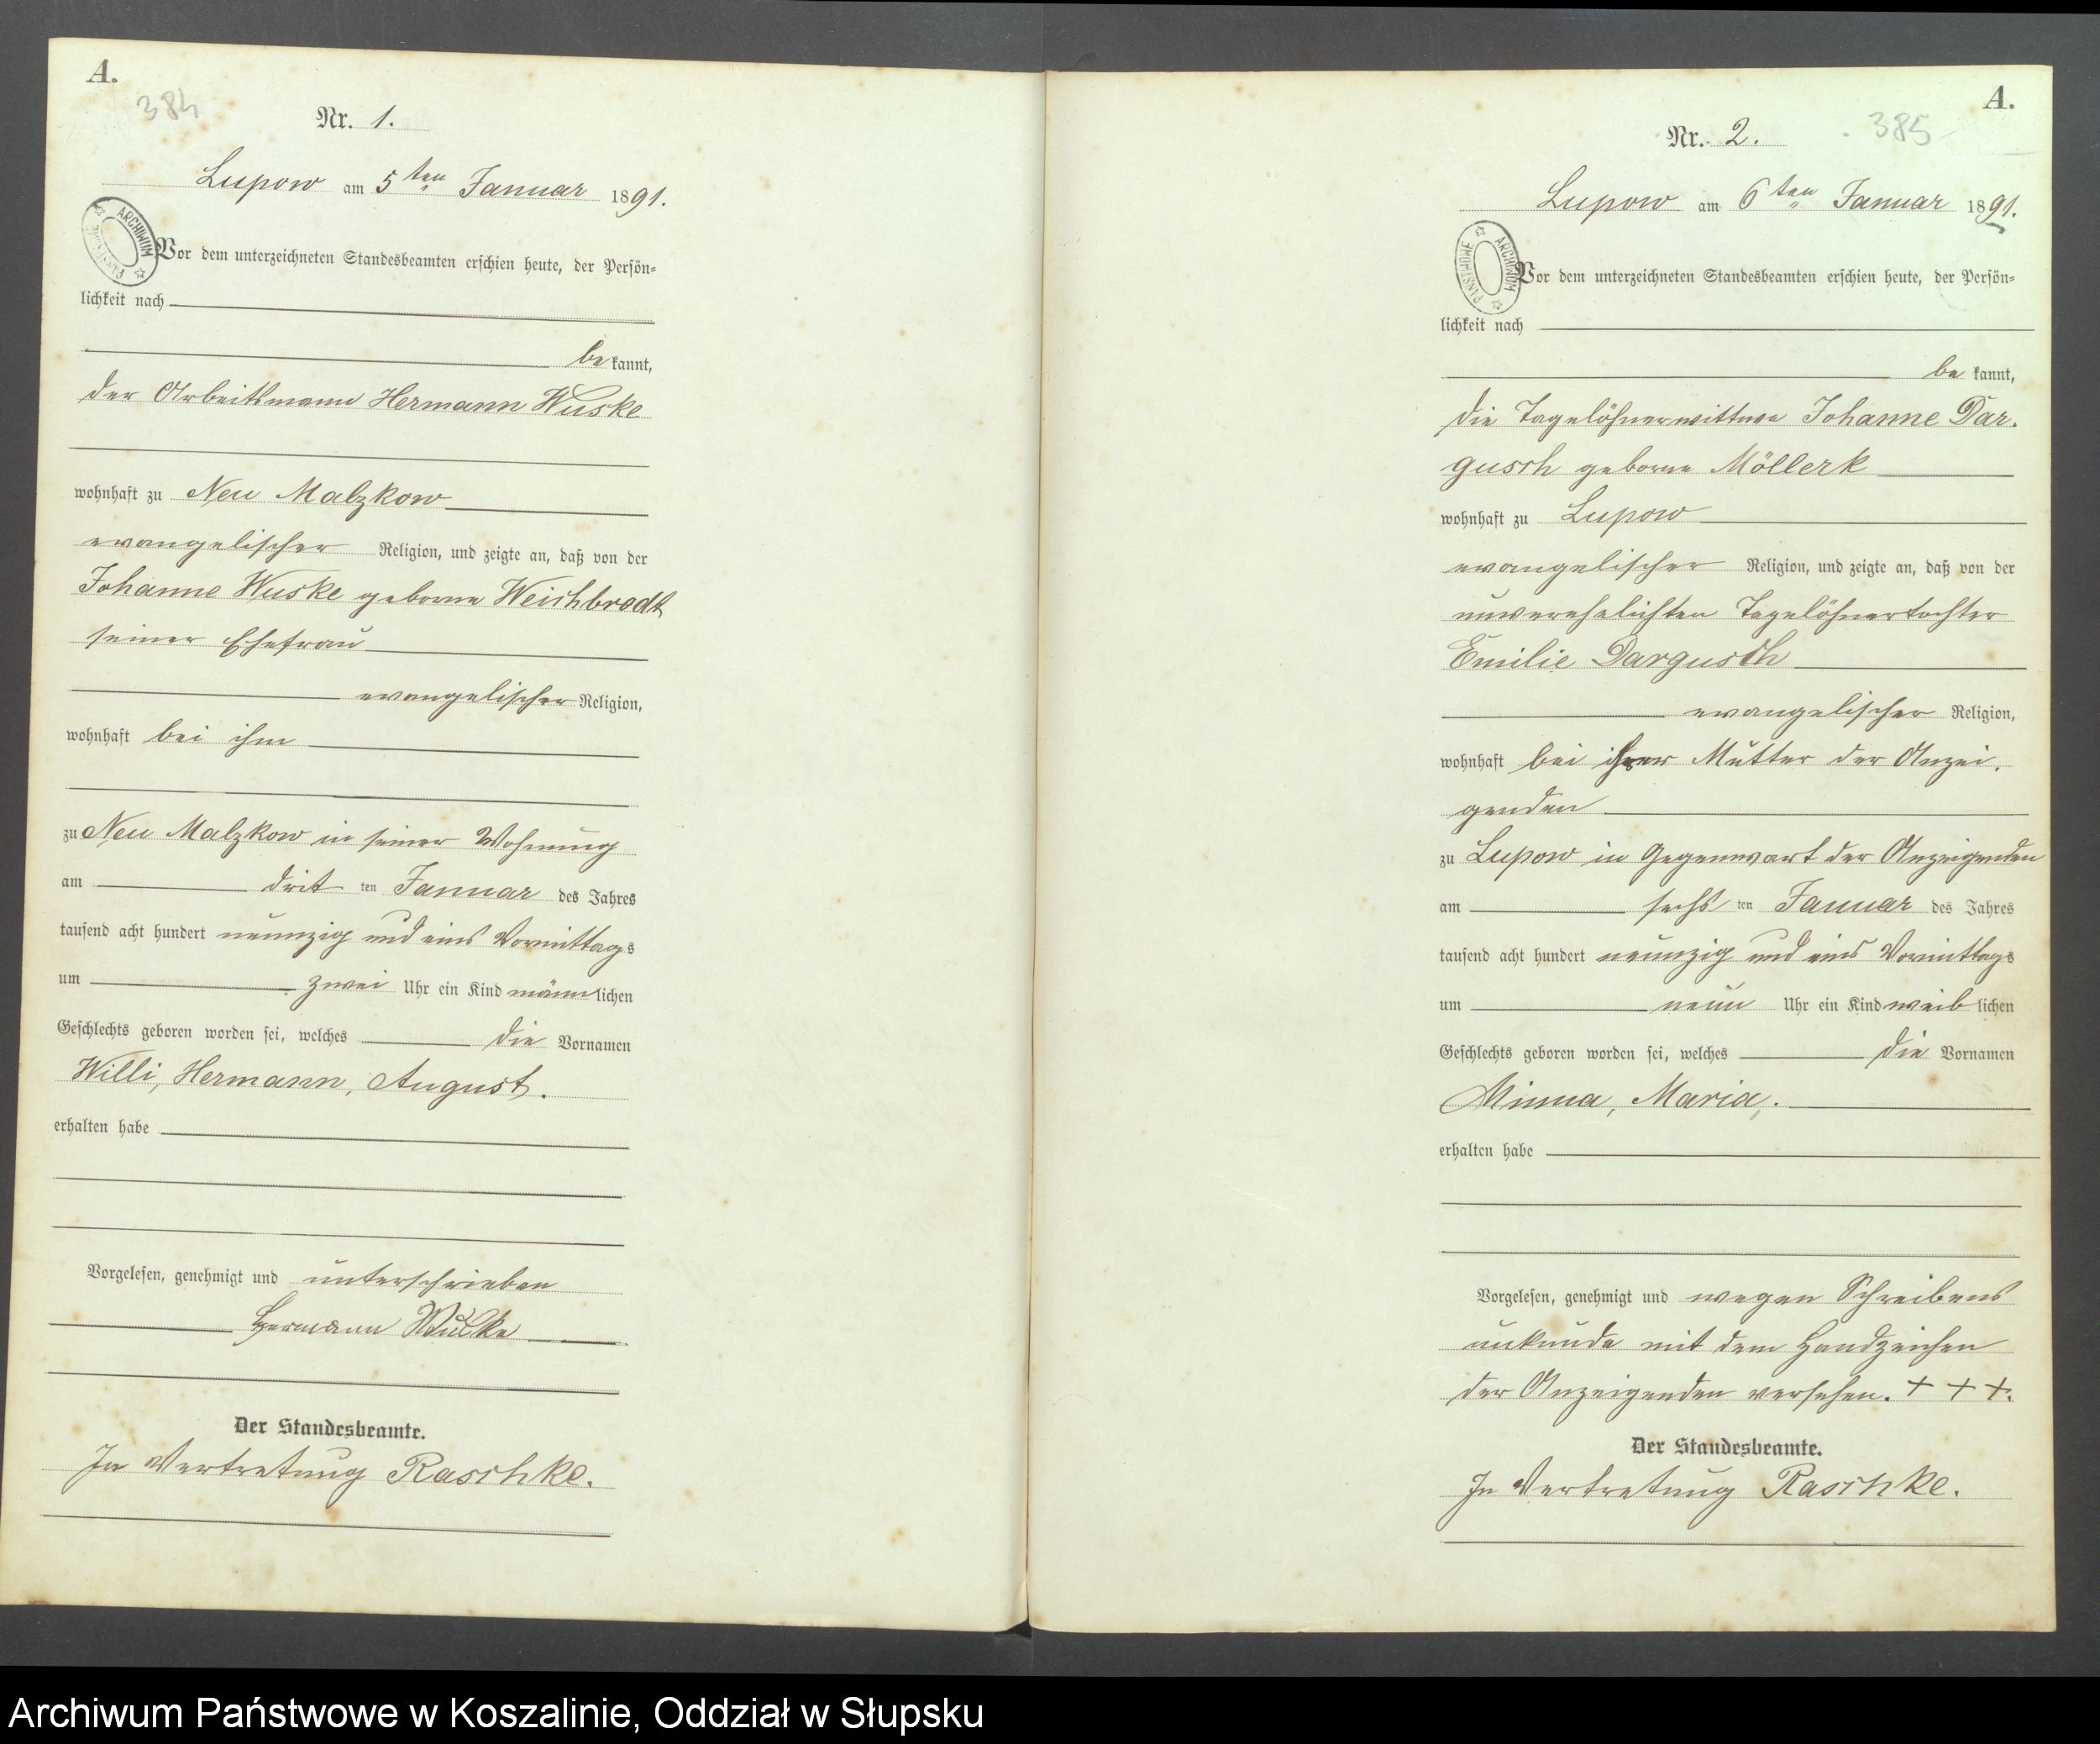 A.
384
Nr. 1.
Lupow am 5ten Januar 1891.
ARCHIWUM PAŃSTWOWE
Vor dem unterzeichneten Standesbeamten erschien heute, der Persön=
lichkeit nach
be kannt,
der Arbeitsmann Hermann Wuske
wohnhaft zu Neu Malzkow
evangelischer Religion, und zeigte an, daß von der
Johanne Wuske geborne Weichbrodt
seiner Ehefrau
evangelischer Religion,
wohnhaft bei ihm
zu Neu Malzkow in seiner Wohnung
am drit ten Januar des Jahres
tausend acht hundert neunzig und eins Vormittags
um zwei Uhr ein Kind männ lichen
Geschlechts geboren worden sei, welches die Vornamen
Willi, Hermann, August.
erhalten habe
Vorgelesen, genehmigt und unterschrieben
Hermann
Der Standesbeamte.
In Vertretung Raschke.
A.
385
Nr. 2.
Lupow am 6ten Januar 1891.
ARCHIWUM PAŃSTWOWE
Vor dem unterzeichneten Standesbeamten erschien heute, der Persön=
lichkeit nach
be kannt,
die Tagelöhnerwittwe Johanne Dar.
gusch geborne Möllerk
wohnhaft zu Lupow
evangelischer Religion, und zeigte an, daß von der
unverehelichten Tagelöhnertochter
Emilie Dargusch
evangelischer Religion,
wohnhaft bei ihrer Mutter der Anzei.
genden
zu Lupow in Gegenwart der Anzeigenden
am sechs ten Januar des Jahres
tausend acht hundert neunzig und eins Vormittags
um neun Uhr ein Kind weib lichen
Geschlechts geboren worden sei, welches die Vornamen
Minna, Maria.
erhalten habe
Vorgelesen, genehmigt und wegen Schreibens
unkunde mit dem Handzeichen
der Anzeigenden versehen. + + +.
Der Standesbeamte.
In Vertretung Raschke.
Archiwum Państwowe w Koszalinie, Oddział w Słupsku